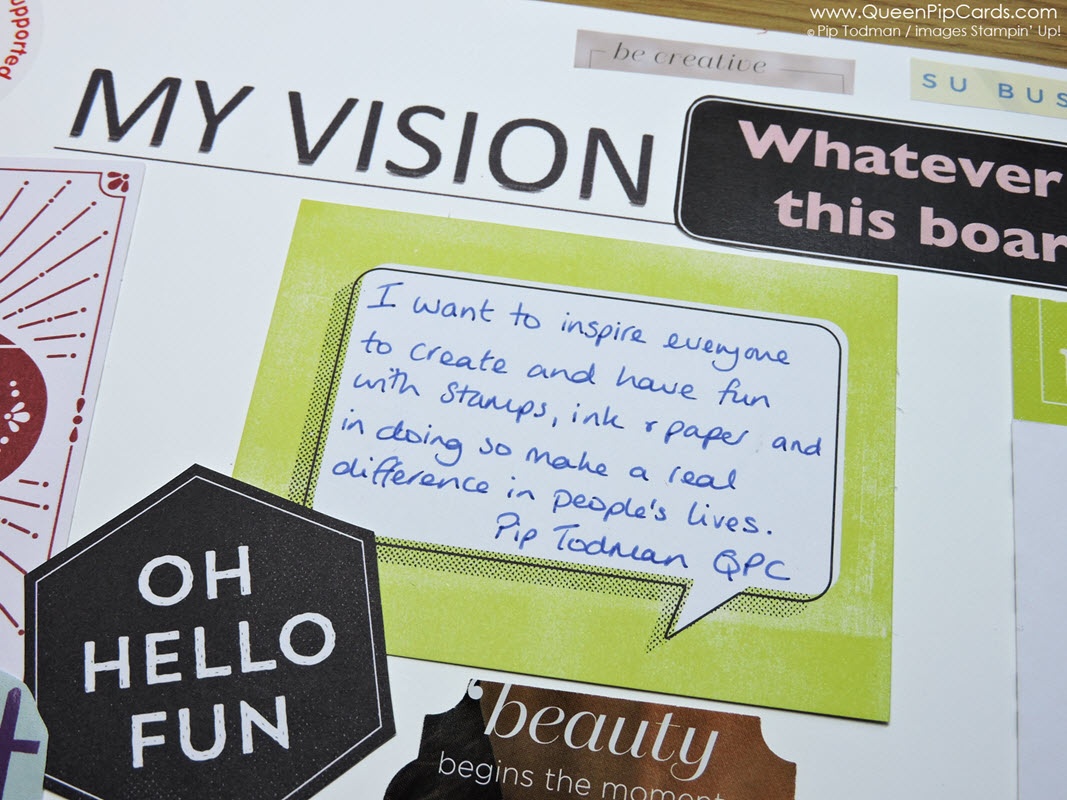 www.QueenPipCards.com
© Pip Todman / images Stampin' Up!
supported
be creative
SU BUS
MY VISION
Whatever
this boar
I want to inspire everyone
to create and have fun
with stamps, ink & paper and
in doing so make a real
difference in people's lives.
Pip Todman QPC
OH
HELLO
FUN
'beauty
begins the moment